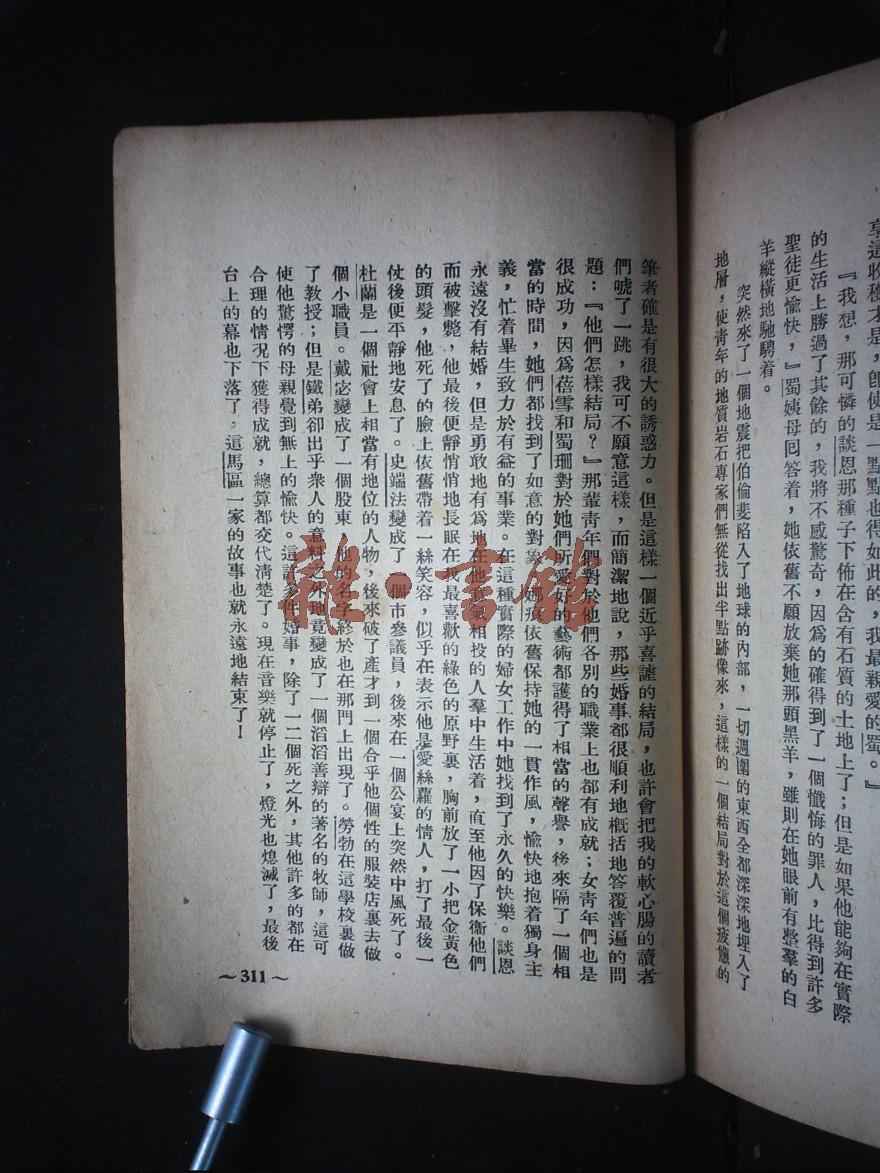 享這收穫才是，卽使是一點點也得如此的，我最親愛的蜀。』
『我想，那可憐的談恩那種子下佈在含有石質的土地上了；但是如果他能夠在實際
的生活上勝過了其餘的，我將不感驚奇，因爲的確得到了一個懺悔的罪人，比得到許多
聖徒更愉快，』蜀姨母囘答着，她依舊不願放棄她那頭黑羊，雖則在她眼前有整羣的白
羊縱橫地馳騁着。
突然來了一個地震把伯倫斐陷入了地球的內部，一切週圍的東西全都深深地埋入了
地層，使靑年的地質岩石專家們無從找出半點跡像來，這樣的一個結局對於這個疲憊的
筆者確是有很大的誘惑力。但是這樣一個近乎喜謔的結局，也許會把我的軟心腸的讀者
們唬了一跳，我可不願意這樣，而簡潔地說，那些婚事都很順利地概括地答覆普遍的問
題：『他們怎樣結局？』那輩靑年們對於他們各別的職業上也都有成就；女靑年們也是
很成功，因爲蓓雪和蜀珊對於她們所愛好的藝術都護得了相當的聲譽，後來隔了一個相
當的時間，她們都找到了如意的對象。娜痲依舊保持她的一貫作風，愉快地抱着獨身主
義，忙着畢生致力於有益的事業。在這種實際的婦女工作中她找到了永久的快樂。談恩
永遠沒有結婚，但是勇敢地有爲地在他意氣相投的人羣中生活着，直至他因了保衞他們
而被擊斃，他最後便靜悄悄地長眠在我最喜歡的綠色的原野裏，胸前放了一小把金黃色
的頭髮，他死了的臉上依舊帶着一絲笑容，似乎在表示他是愛絲蘿的情人，打了最後一
仗後便平靜地安息了。史端法變成了一個市參議員，後來在一個公宴上突然中風死了。
杜蘭是一個社會上相當有地位的人物，後來破了產才到一個合乎他個性的服裝店裏去做
個小職員。戴宓變成了一個股東，他的名字終於也在那門上出現了。勞勃在這學校裏做
了教授；但是鐵弟卻出乎衆人的意料之外地竟變成了一個滔滔善辯的著名的牧師，這可
使他驚愕的母親覺到無上的愉快。這許多件婚事，除了一二個死之外，其他許多的都在
合理的情況下獲得成就，總算都交代淸楚了。現在音樂就停止了，燈光也熄滅了，最後
台上的幕也下落了，這馬區一家的故事也就永遠地結束了！
～311～
雜·書館